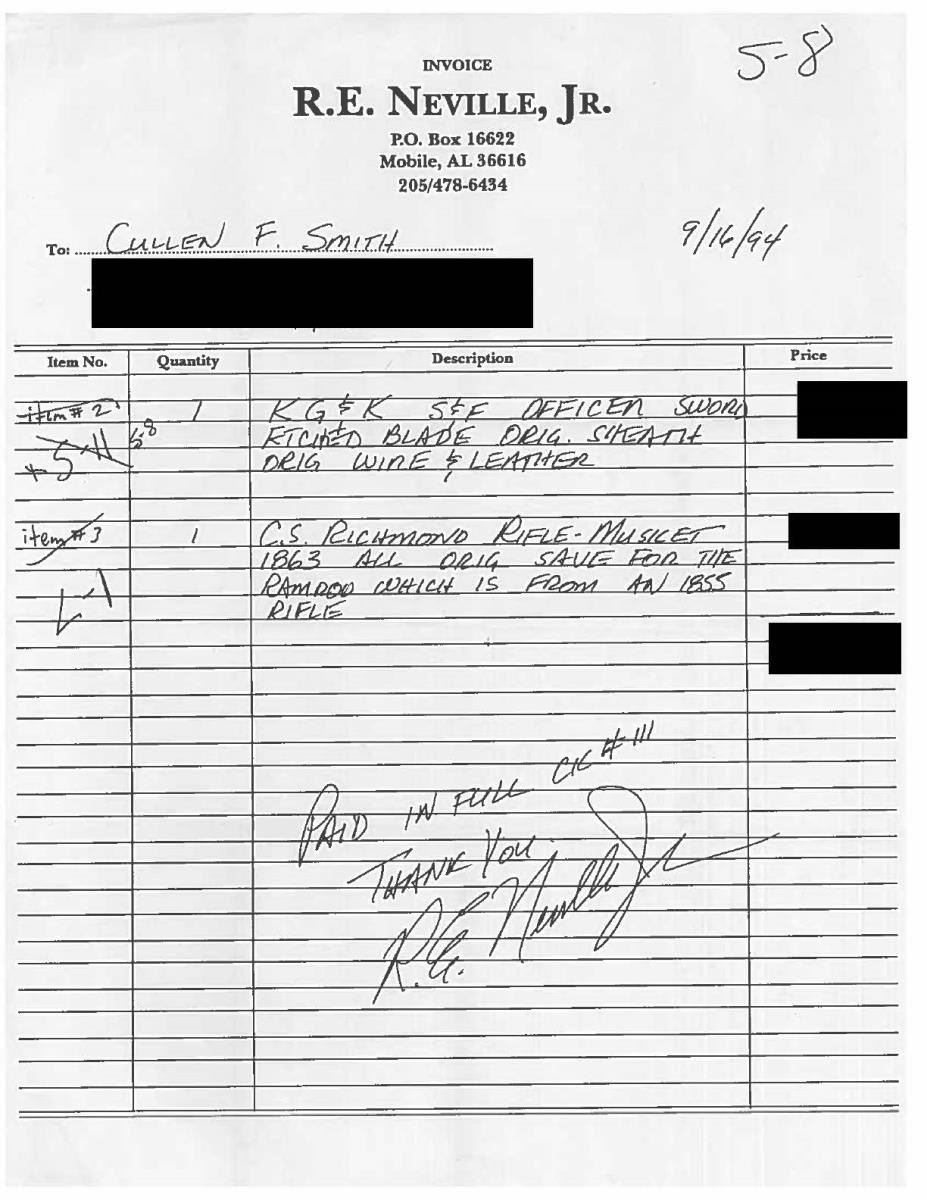 5-8
INVOICE
R.E. NEVILLE, JR.
P.O. Box 16622
Mobile, AL 36616
205/478-6434
To: CULLEN F. SMITH
9/16/94
Item No. Quantity Description Price
item # 2 1 KG & K S&F OFFICER SWORD
5-11 5-8 ETCHED BLADE ORIG. SHEATH
ORIG WIRE & LEATHER
item # 3 1 C.S. RICHMOND RIFLE-MUSKET
1863 ALL ORIG SAVE FOR THE
L-1 RAMROD WHICH IS FROM AN 1855
RIFLE
PAID IN FULL CK # 111
THANK YOU
R.E. Neville Jr